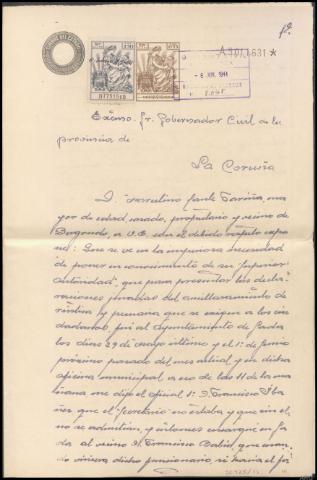 A7011631*
- 8 JUN. 1944
Excmo. Sr. Gobernador Civil de la
provincia de
La Coruña
D. Marcelino Fariña, ma-
yor de edad, casado, propietario y vecino de
Bergondo, a V.E. con el debido respeto expo-
ne: Que se ve en la imperiosa necesidad
de poner en conocimiento de su Superior
Autoridad, que para presentar las decla-
raciones juradas del amillaramiento de
rústica y pecuaria que se exigen a los ciu-
dadanos, fuí al Ayuntamiento de Sada
los días 29 de mayo último y el 1º de junio
próximo pasado del mes actual y en dicha
oficina municipal a eso de las 11 de la ma-
ñana me dijo el oficial 1º D. Francisco Iba-
ñez que el Secretario no estaba y que sin él
no se admitían, y entonces encargué en Sa-
da al vecino D. Francisco que cuan-
do viniera dicho funcionario, se hiciera el